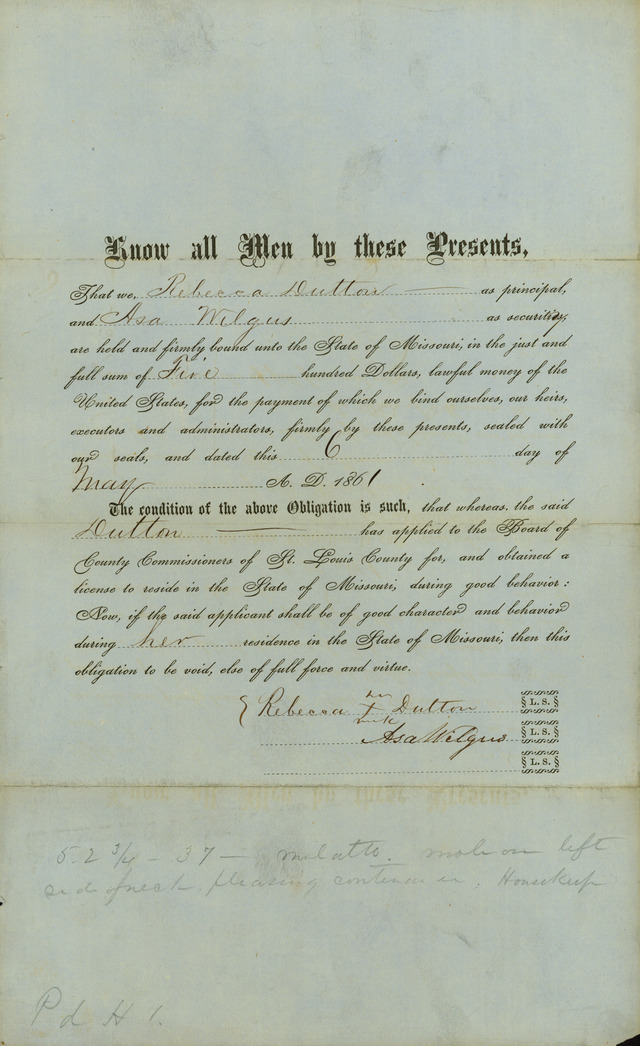 Know all Men by these Presents,
That we, Rebecca Dutton as principal,
and Asa Wilgus as security,
are held and firmly bound unto the State of Missouri, in the just and
full sum of Five hundred Dollars, lawful money of the
United States, for the payment of which we bind ourselves, our heirs,
executors and administrators, firmly by these presents, sealed with
our seals, and dated this 6 day of
May A. D. 1861.
The condition of the above Obligation is such, that whereas, the said
Dutton has applied to the Board of
County Commissioners of St. Louis County for, and obtained a
license to reside in the State of Missouri, during good behavior:
Now, if the said applicant shall be of good character and behavior
during her residence in the State of Missouri, then this
obligation to be void, else of full force and virtue.
her
Rebecca x Dutton L. S.
mark
Asa Wilgus L. S.
L. S.
5.2 3/4 - 37 - mulatto. mole on left
side of neck, pleasing, Housekeep
Pd H 1.